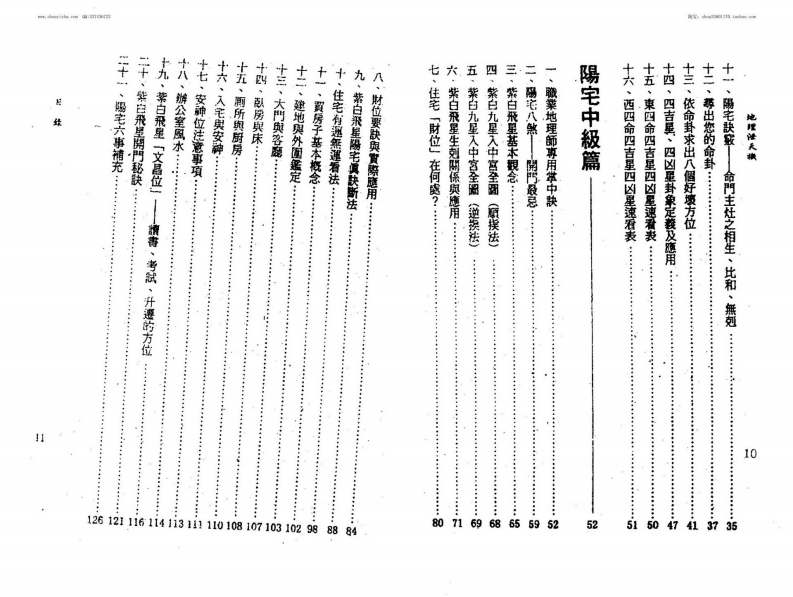 地理法天機
十一、陽宅訣竅——命門主灶之相生、比和、無剋……35
十二、尋出您的命卦……37
十三、依命卦求出八個好壞方位……41
十四、四吉星、四凶星卦象定義及應用……47
十五、東四命四吉星四凶星速看表……50
十六、西四命四吉星四凶星速看表……51
陽宅中級篇——52
一、職業地理師專用掌中訣……52
二、陽宅八煞——開門最忌……59
三、紫白飛星基本觀念……65
四、紫白九星入中宮全圖（順挨法）……68
五、紫白九星入中宮全圖（逆挨法）……69
六、紫白飛星生剋關係與應用……71
七、住宅「財位」在何處？……80
10
八、財位要訣與實際應用……84
九、紫白飛星陽宅眞訣斷法……88
十、住宅有運無運看法……98
十一、買房子基本概念……102
十二、建地與外圍鑑定……103
十三、大門與客廳……107
十四、臥房與床……108
十五、厠所與厨房……110
十六、入宅與安神……111
十七、安神位注意事項……113
十八、辦公室風水……114
十九、紫白飛星「文昌位」——讀書、考試、升遷的方位……116
二十、紫白飛星開門秘訣……121
二十一、陽宅六事補充……126
目錄
11